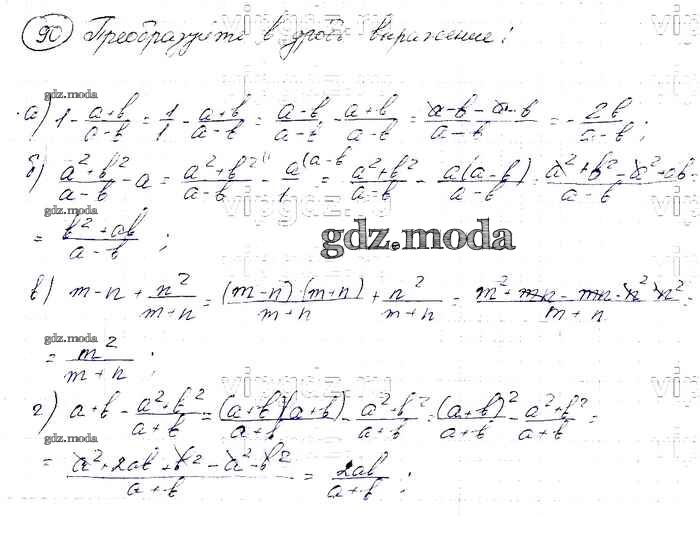 90 Преобразуйте в дробь выражение:
gdz.moda
а) 1 - (a+b)/(a-b) = 1/1 - (a+b)/(a-b) = (a-b)/(a-b) - (a+b)/(a-b) = (a-b-a-b)/(a-b) = - 2b/(a-b) ;
б) (a²+b²)/(a-b) - a = (a²+b²)/(a-b) - a/1 (a-b = (a²+b²)/(a-b) - a(a-b)/(a-b) = (a²+b²-a²+ab)/(a-b) =
gdz.moda
= (b²+ab)/(a-b) ;
gdz.moda
в) m-n + n²/(m+n) = (m-n)·(m+n)/(m+n) + n²/(m+n) = (m²+mn-mn-n²+n²)/(m+n) =
gdz.moda
= m²/(m+n) ;
г) a+b - (a²+b²)/(a+b) = (a+b)(a+b)/(a+b) - (a²+b²)/(a+b) = (a+b)²/(a+b) - (a²+b²)/(a+b) =
gdz.moda
= (a²+2ab+b²-a²-b²)/(a+b) = 2ab/(a+b) ;